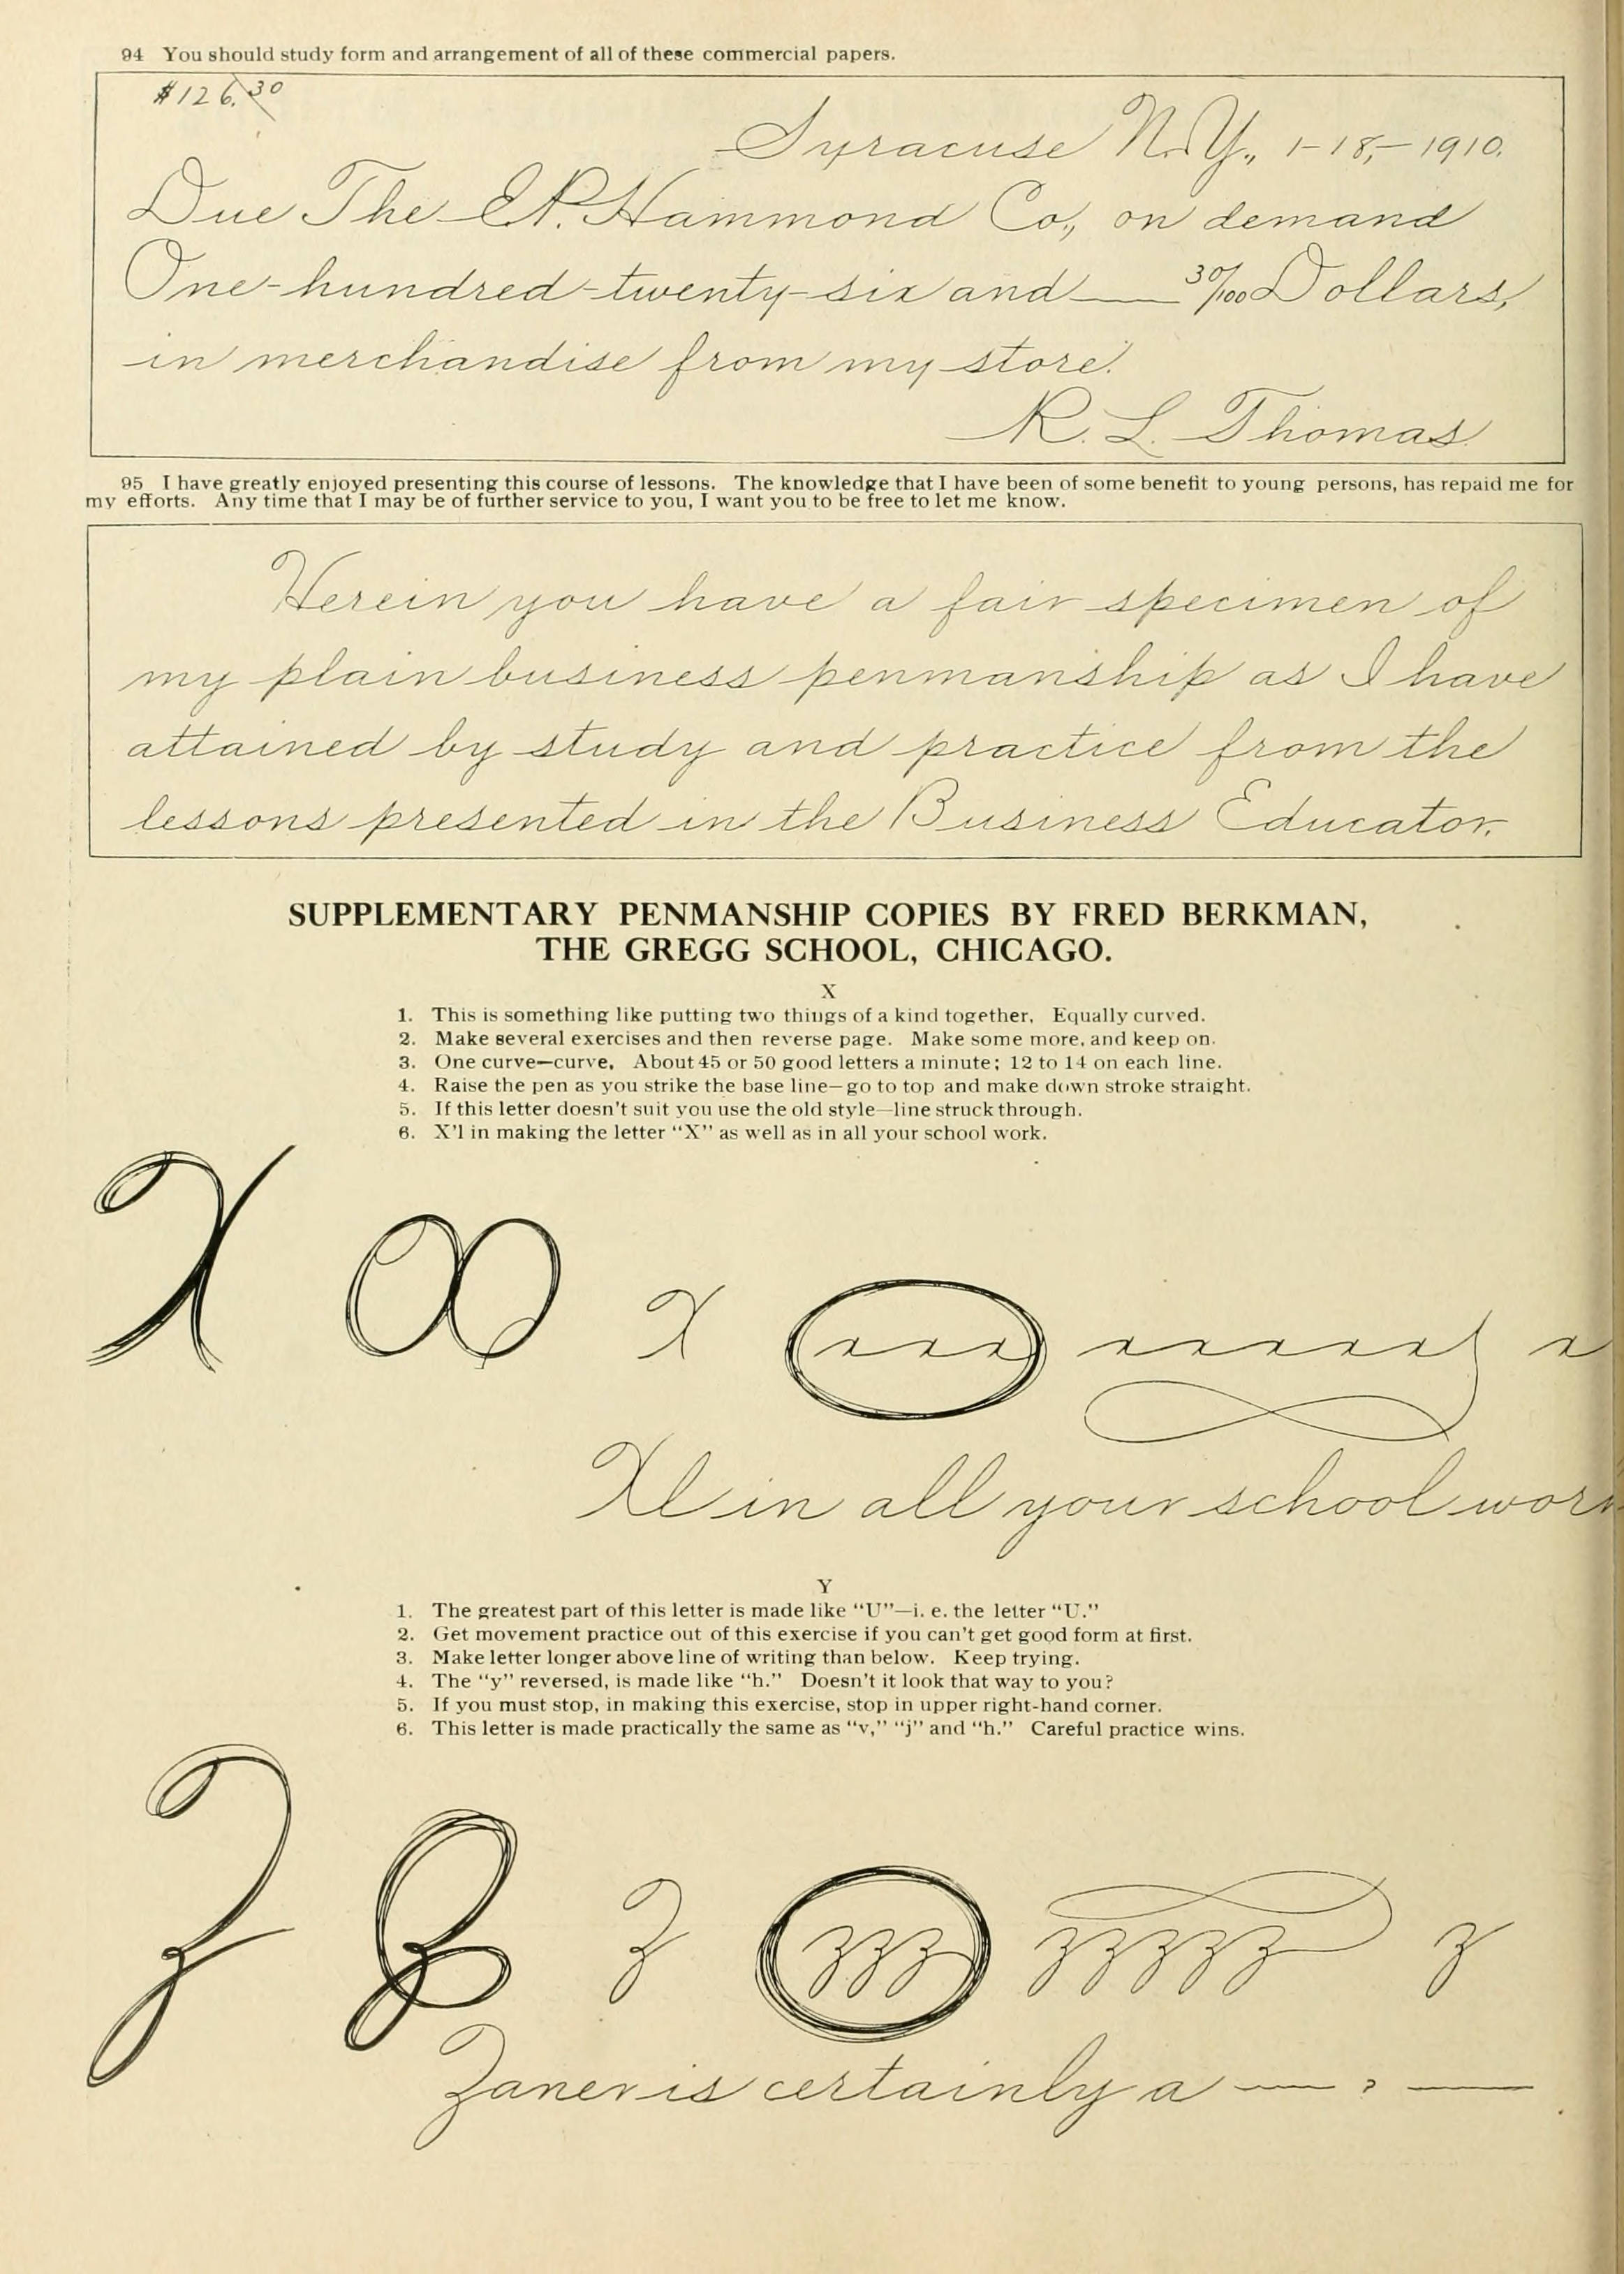 94 You should study form and arrangement of all of these commercial papers.
$126.30
Syracuse N.Y., 1-18,-1910.
Due The E.P. Hammond Co., on demand
One-hundred-twenty-six and 30/100 Dollars,
in merchandise from my store.
R. L. Thomas.
95 I have greatly enjoyed presenting this course of lessons. The knowledge that I have been of some benefit to young persons, has repaid me for
my efforts. Any time that I may be of further service to you, I want you to be free to let me know.
Herein you have a fair specimen of
my plain business penmanship as I have
attained by study and practice from the
lessons presented in the Business Educator.
SUPPLEMENTARY PENMANSHIP COPIES BY FRED BERKMAN,
THE GREGG SCHOOL, CHICAGO.
X
1. This is something like putting two things of a kind together, Equally curved.
2. Make several exercises and then reverse page. Make some more, and keep on.
3. One curve—curve, About 45 or 50 good letters a minute; 12 to 14 on each line.
4. Raise the pen as you strike the base line—go to top and make down stroke straight.
5. If this letter doesn't suit you use the old style—line struck through.
6. X'l in making the letter "X" as well as in all your school work.
X X x x x x x x x x x x
Xl in all your school work
Y
1. The greatest part of this letter is made like "U"—i. e. the letter "U."
2. Get movement practice out of this exercise if you can't get good form at first.
3. Make letter longer above line of writing than below. Keep trying.
4. The "y" reversed, is made like "h." Doesn't it look that way to you?
5. If you must stop, in making this exercise, stop in upper right-hand corner.
6. This letter is made practically the same as "v," "j" and "h." Careful practice wins.
Z Z Z zzz zzzzz z
Zaner is certainly a — ? —